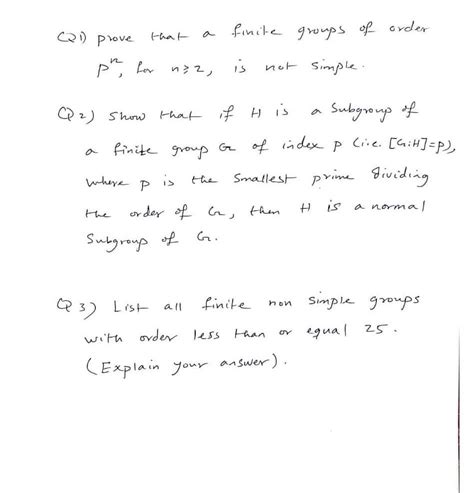 Q1) prove that a finite groups of order
pⁿ, for n≥2, is not simple.
Q2) Show that if H is a Subgroup of
a finite group G of index p (i.e. [G:H]=p),
where p is the smallest prime dividing
the order of G, then H is a normal
Subgroup of G.
Q3) List all finite non simple groups
with order less than or equal 25.
(Explain your answer).